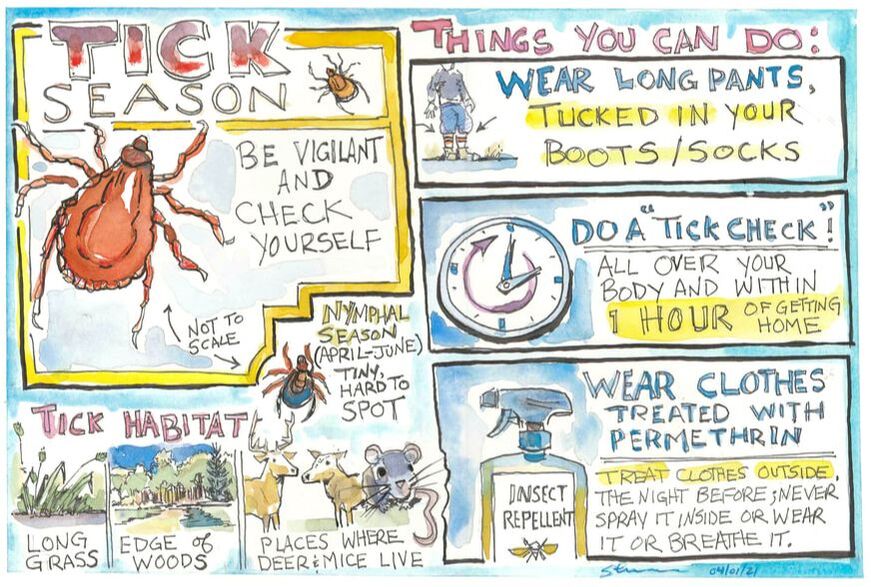 TICK
SEASON
BE VIGILANT
AND
CHECK
YOURSELF
NOT TO
SCALE
NYMPHAL
SEASON
(APRIL-JUNE)
TINY,
HARD TO
SPOT
TICK HABITAT
LONG
GRASS
EDGE of
WOODS
PLACES WHERE
DEER & MICE LIVE
THINGS YOU CAN DO:
WEAR LONG PANTS,
TUCKED IN YOUR
BOOTS/SOCKS
DO A "TICK CHECK"!
ALL OVER YOUR
BODY AND WITHIN
1 HOUR OF GETTING
HOME
WEAR CLOTHES
TREATED WITH
PERMETHRIN
INSECT
REPELLENT
TREAT CLOTHES OUTSIDE,
THE NIGHT BEFORE; NEVER
SPRAY IT INSIDE OR WEAR
IT OR BREATHE IT.
04/01/21